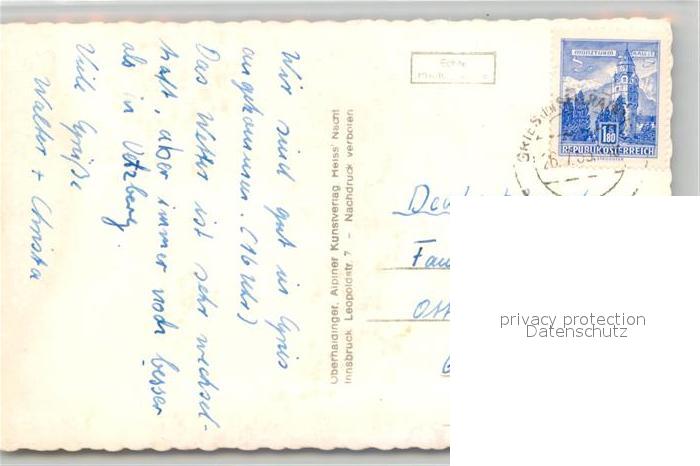 Wir sind gut in Gries
angekommen. (16 Uhr)
Das Wetter ist sehr wechsel-
haft, aber immer noch besser
als in
Viele Grüße
Walter + Christa
Oberhaidinger, Alpiner Kunstverlag Heiss' Nachf.
Innsbruck Leopoldstr. 7 - Nachdruck verboten
Echte
MÜNZTURM HALL
1.80
REPUBLIK ÖSTERREICH
GRIES
privacy protection
Datenschutz